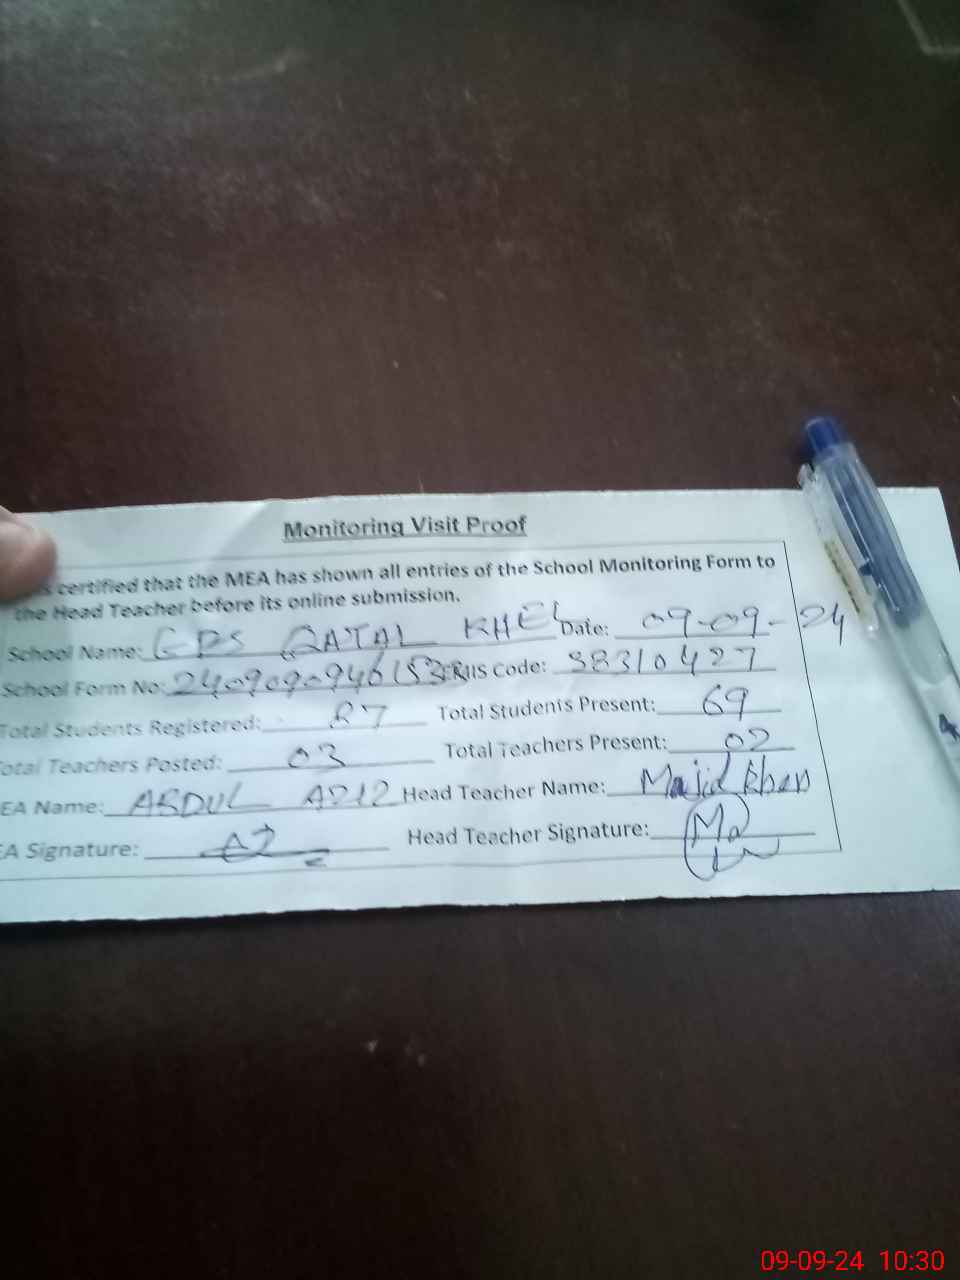 Monitoring Visit Proof
certified that the MEA has shown all entries of the School Monitoring Form to
the Head Teacher before its online submission.
School Name: GPS QATAL KHEL Date: 09-09-24
School Form No: Code: 38310427
Total Students Registered: 87 Total Students Present: 69
otal Teachers Posted: 03 Total Teachers Present: 02
EA Name: ABDUL Head Teacher Name: Majid khan
EA Signature: Head Teacher Signature:
09-09-24 10:30